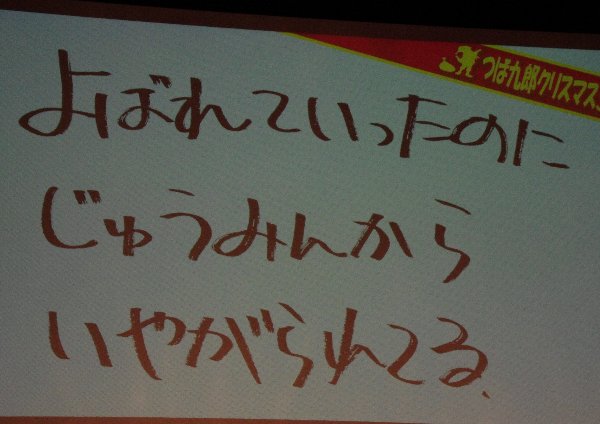 つば九郎クリスマス
よばれていったのに
じゅうみんから
いやがられてる、